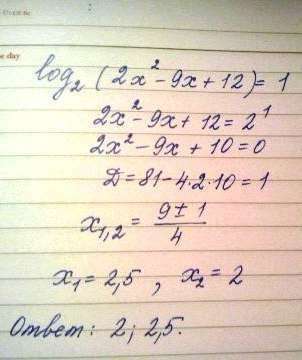 e day
log₂ (2x² - 9x + 12) = 1
2x² - 9x + 12 = 2¹
2x² - 9x + 10 = 0
D = 81 - 4·2·10 = 1
x₁,₂ = (9 ± 1)/4
x₁ = 2,5 , x₂ = 2
Ответ: 2; 2,5.